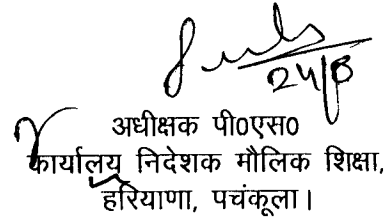 24/8
अधीक्षक पी0एस0
कार्यालय निदेशक मौलिक शिक्षा,
हरियाणा, पचंकूला।